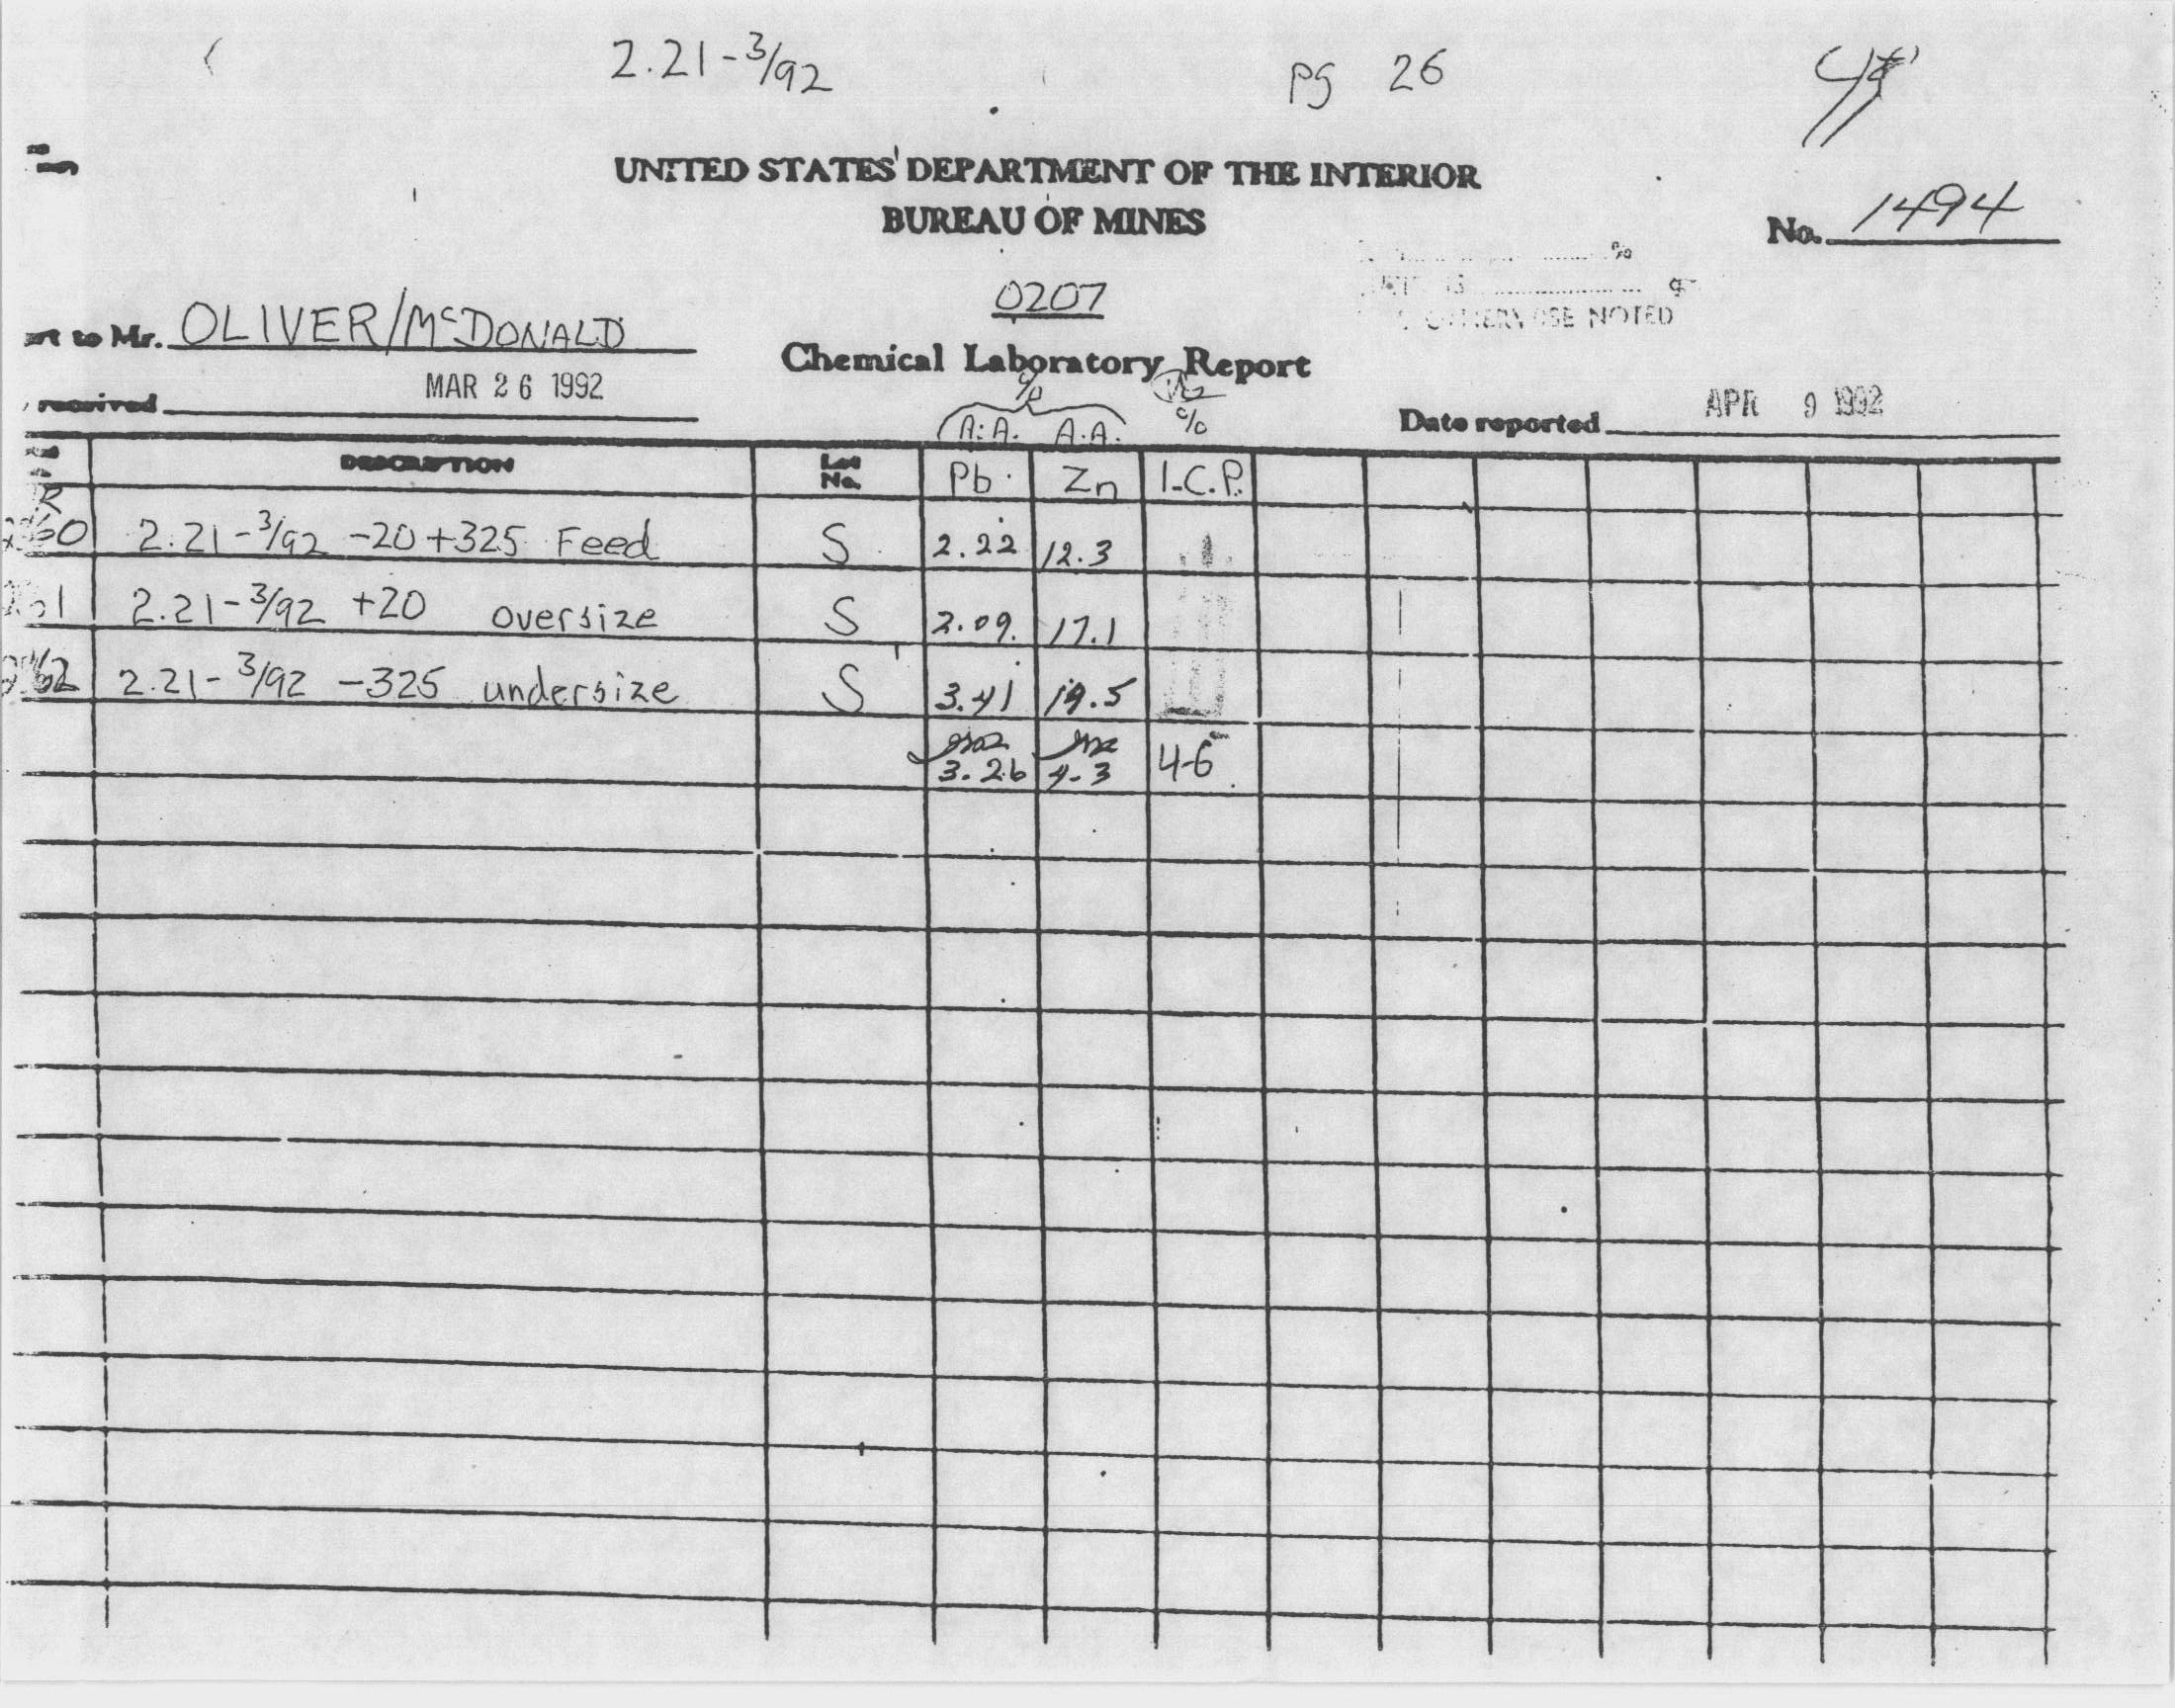 2.21-3/92 pg 26
UNITED STATES DEPARTMENT OF THE INTERIOR
BUREAU OF MINES
No. 1494
0207
%
OTHERWISE NOTED
to Mr. OLIVER/McDONALD
Chemical Laboratory Report
received MAR 26 1992
Date reported APR 9 1992
% %
A.A. A.A.
DESCRIPTION Lot No. Pb Zn I.C.P.
2.21-3/92 -20+325 Feed S 2.22 12.3
2.21-3/92 +20 oversize S 2.09 17.1
2.21-3/92 -325 undersize S 3.41 19.5
3.26 4.3 4-6